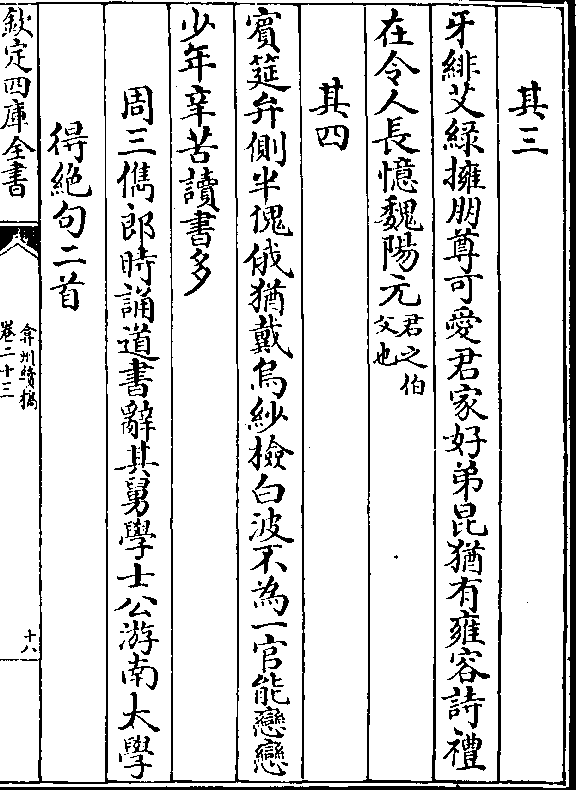 其三
牙緋艾緑擁朋尊可愛君家好弟昆猶有雍容詩禮
在令人長憶魏陽元君之伯父也
其四
賓筵弁側半傀俄猶戴烏紗檢白波不為一官能戀戀
少年辛苦讀書多
周三儁郎時誦道書辭其舅學士公游南太學
得絶句二首
欽定四庫全書
弇州續稿
卷二十三
十八